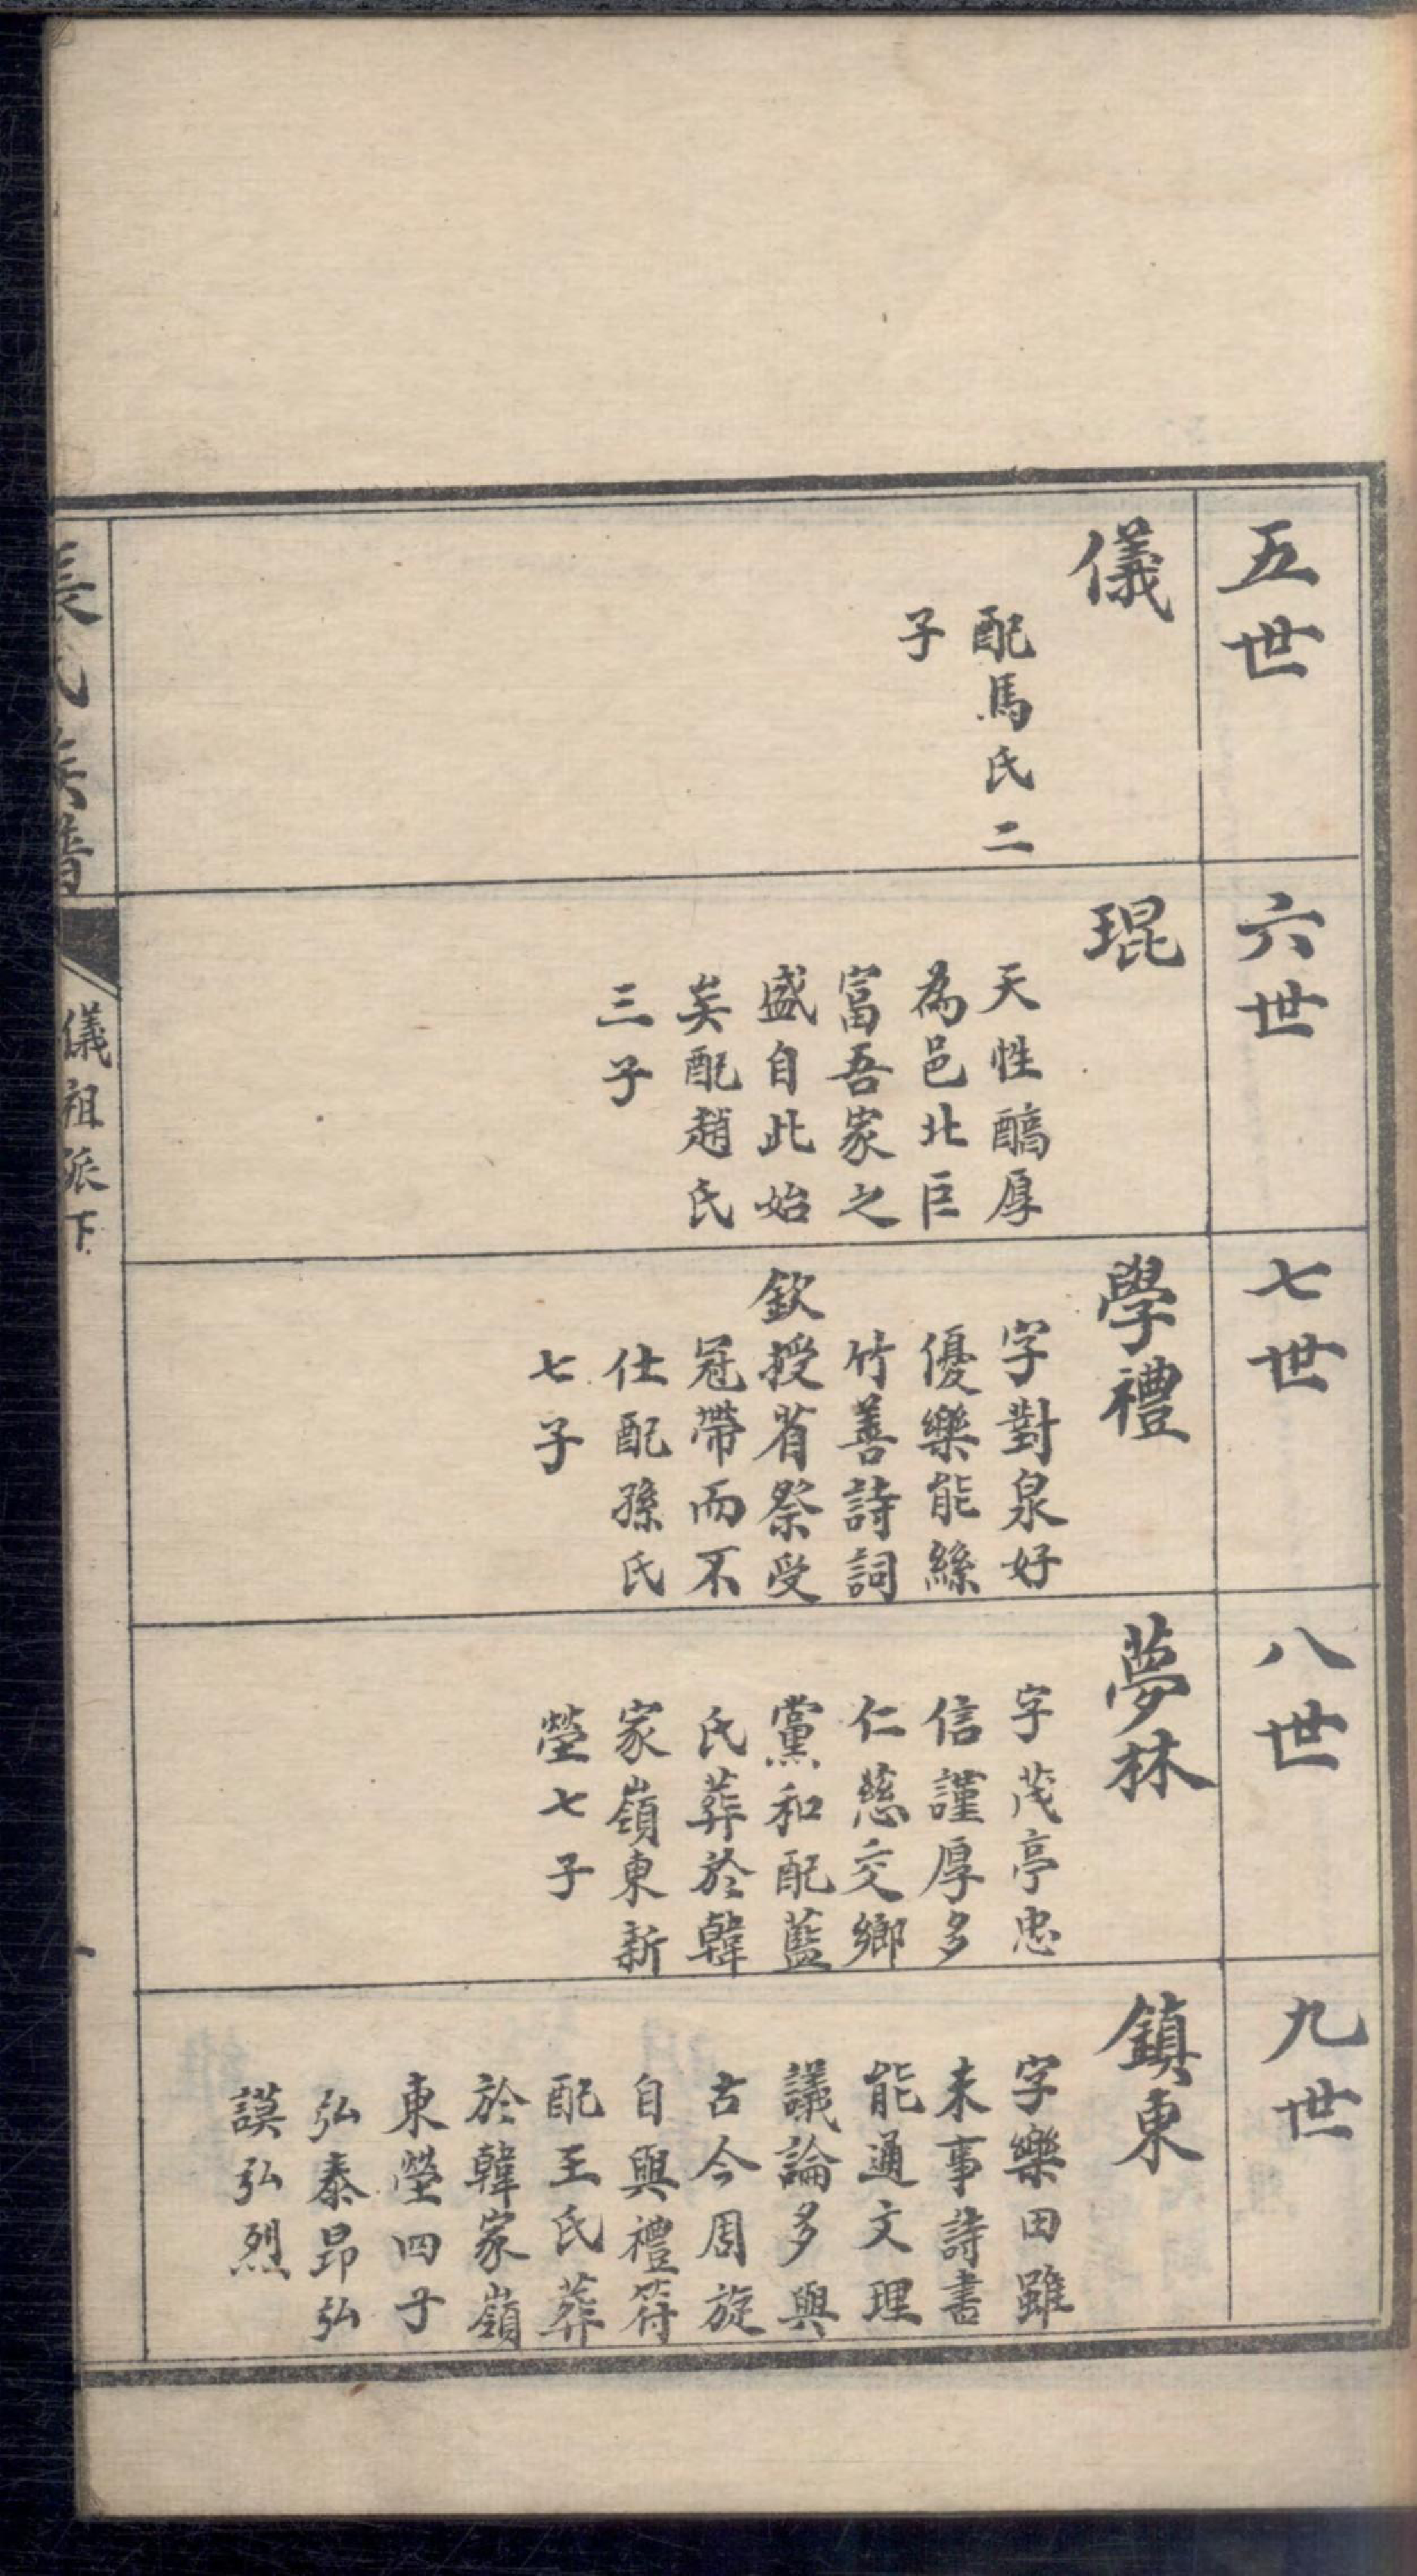 五世
儀
配馬氏二
子
六世
琨
天性醕厚
為邑北巨
富吾家之
盛自此始
矣配趙氏
三子
七世
學禮
字對泉好
優樂能絲
竹善詩詞
欽授省祭受
冠帶而不
仕配孫氏
七子
八世
夢林
字茂亭忠
信謹厚多
仁慈交鄉
黨和配藍
氏葬於韓
家嶺東新
塋七子
九世
鎮東
字樂田雖
未事詩書
能通文理
議論多與
古今周旋
自與禮符
配王氏葬
於韓家嶺
東塋四子
弘泰昂弘
謨弘烈
長氏族譜
儀祖派下
一